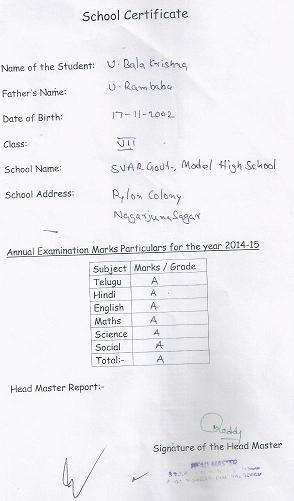 School Certificate
Name of the Student: U. Bala Krishna
Father's Name: U. Rambabu
Date of Birth: 17-11-2002
Class: VII
School Name: SVAR Govt., Model High School
School Address: Pylon Colony
Nagarjuna Sagar
Annual Examination Marks Particulars for the year 2014-15
Subject Marks / Grade
Telugu A
Hindi A
English A
Maths A
Science A
Social A
Total:- A
Head Master Report:-
Reddy
Signature of the Head Master
HEAD MASTER